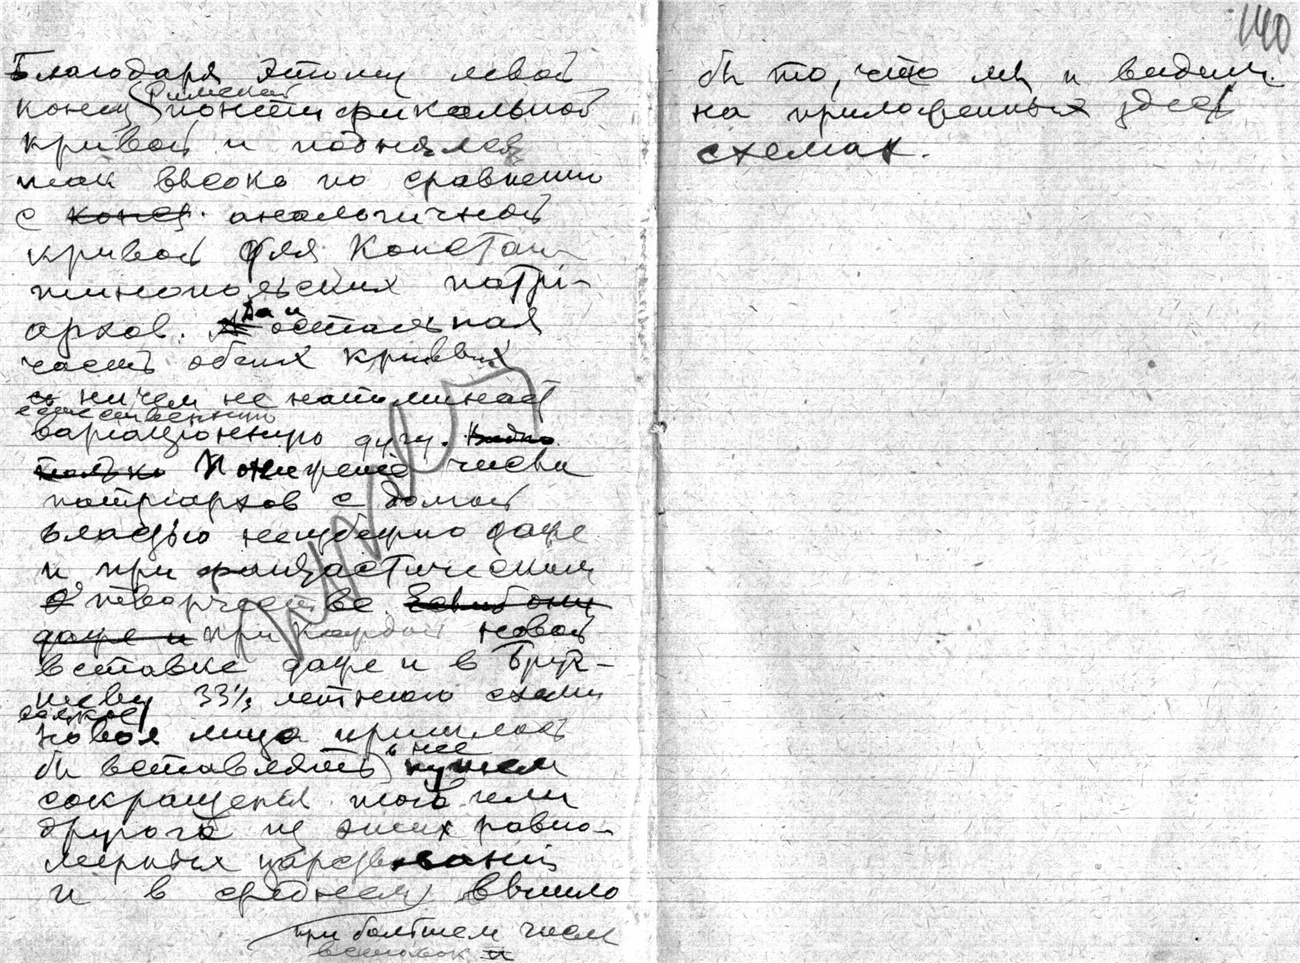 140
Благодаря этому левой
конец (Римской) понтификальной
кривой и поднялся
так высоко по сравнению
с конец. аналогичной
кривой для Констан-
тинопольских патрі-
архов. Да и остальная
часть обеих кривых
ничем не напоминает
естественную
варіаціонную дугу. Видно
только Пониженіе числа
патріархов с долгой
властью неизбежно даже
и при фантастическом
творчестве.
даже и при каждой новой
вставке даже и в
33⅓ летнюю схему
всякое
новое лицо пришлось
бы вставлять в нее путем
сокращенія того или
другого из этих равно-
мерных царствованій
и в среднем вышло
при большем числе
вставок и
бы то, что мы и видим
на приложенных здесь
схемах.